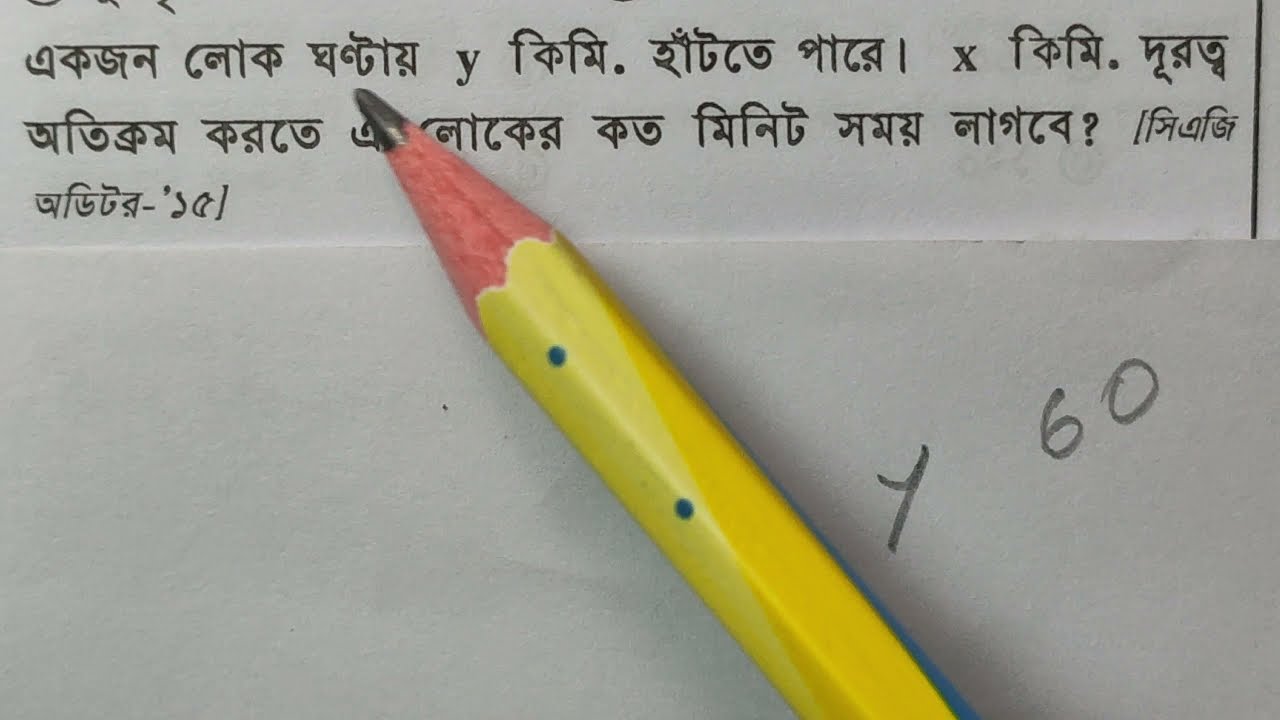 একজন লোক ঘণ্টায় y কিমি. হাঁটতে পারে। x কিমি. দূরত্ব
অতিক্রম করতে লোকের কত মিনিট সময় লাগবে? [সিএজি
অডিটর-'১৫]
60
y